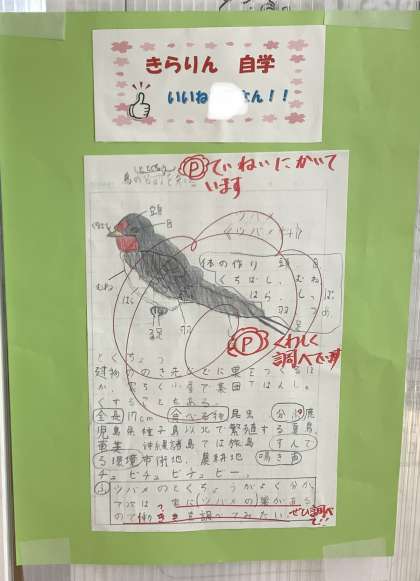 きらりん 自学
いいね さん！！
Ⓟていねいにかいて
います
鳥の
頭
目
くちばし
むね
はら
羽
足
ツバメ
《ツバメ科》
体の作り 頭、目
くちばし、むね
はら、しっぽ
羽、つめ
足
Ⓟくわしく
調べてます
とくちょう
建物ののき先などに巣をつくるほ
か、家ちく小屋で集団ではんし
くすることもある。
全長17cm 食べる物 昆虫 分布 鹿
児島県種子島以北で繁殖する夏鳥
奄美 沖縄諸島では旅鳥 すんで
る環境 市街地、農耕地 鳴き声
チュビチュビチュビー、
ツバメのとくちょうがよく分か
次は、 (ツバメの)巣が
ので を調べてみたい
ぜひ調べ
て!!